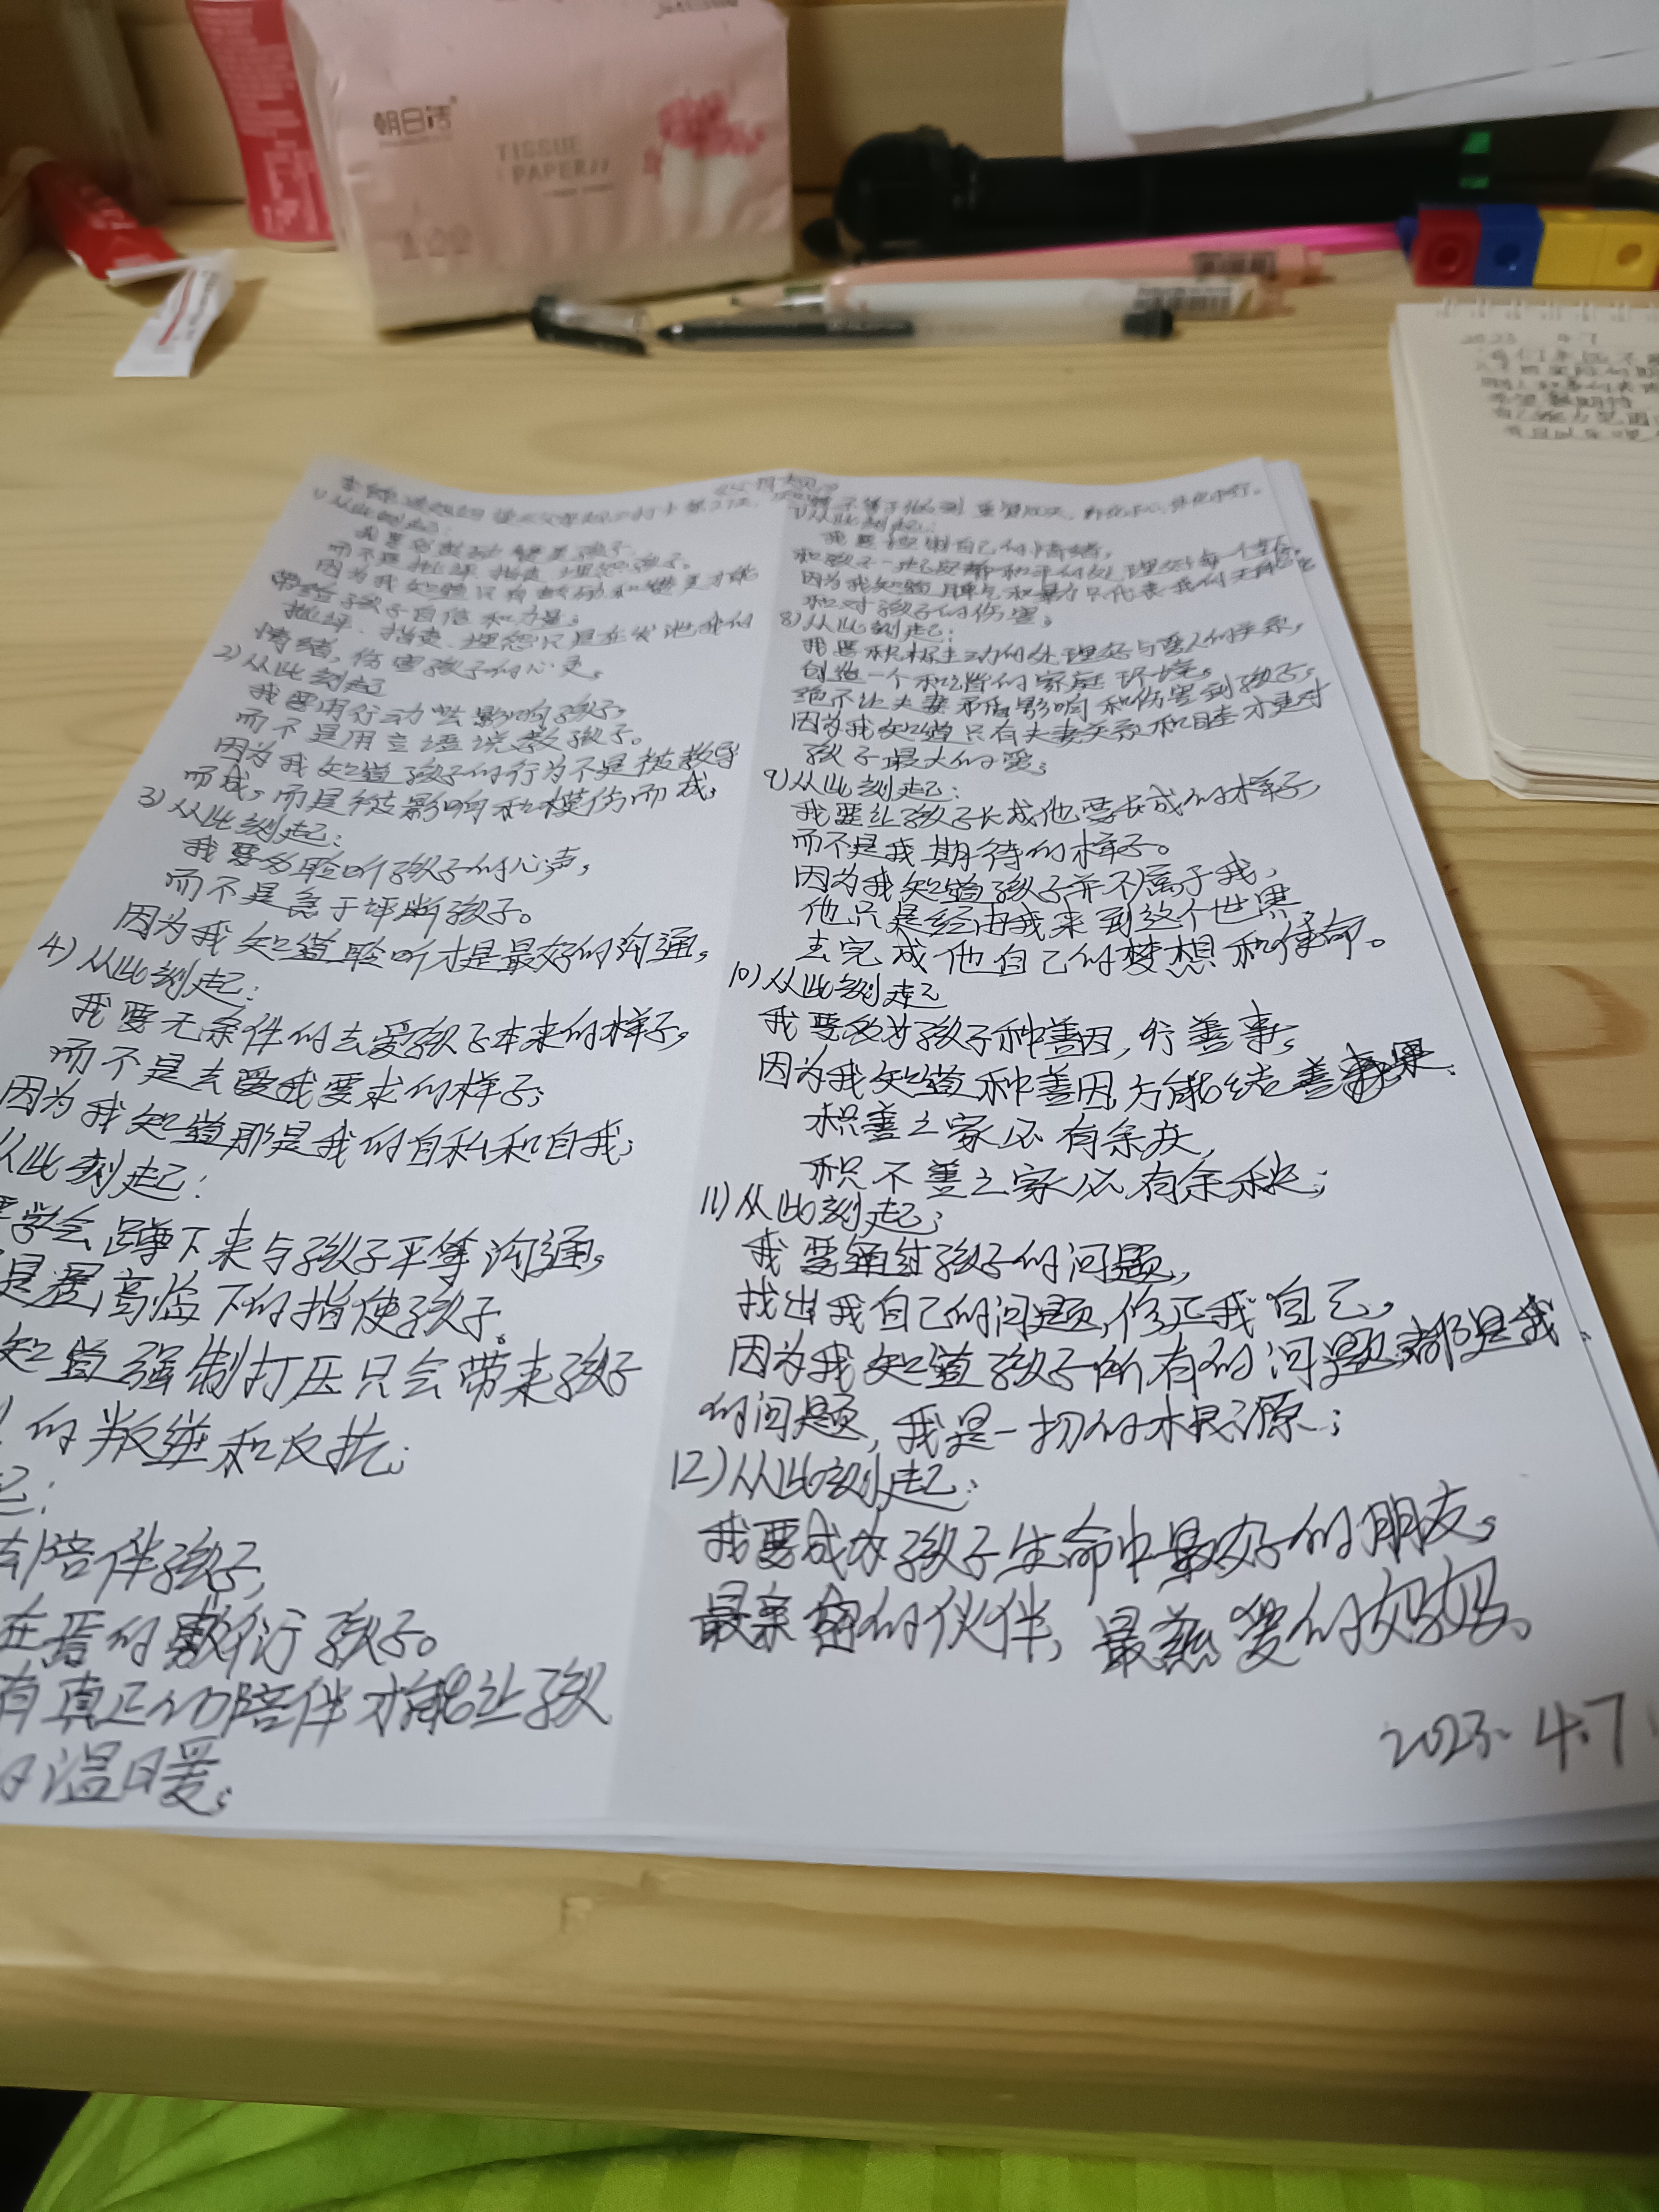 朝日洁
TISSUE
PAPER
2023 4.7
1)从此刻起:
我要多鼓励 赞美孩子,
而不是批评、指责、埋怨孩子。
因为我知道只有鼓励和赞美才能
带给孩子自信和力量;
批评、指责、埋怨只是在发泄我的
情绪,伤害孩子的心灵。
2)从此刻起
我要用行动去影响孩子,
而不是用言语说教孩子。
因为我知道孩子的行为不是被教导
而成,而是被影响和模仿而成;
3)从此刻起:
我要多聆听孩子的心声,
而不是急于评断孩子。
因为我知道聆听才是最好的沟通,
4)从此刻起:
我要无条件的去爱孩子本来的样子,
而不是去爱我要求的样子;
因为我知道那是我的自私和自我;
从此刻起:
要学会蹲下来与孩子平等沟通,
是居高临下的指使孩子。
知道强制打压只会带来孩子
的叛逆和反抗;
起:
陪伴孩子,
在焉的敷衍孩子。
有真正的陪伴才能让孩
温暖;
7)从此刻起:
我要控制自己的情绪,
和孩子一起安静和平的处理好每一个当下。
因为我知道脾气和暴力只代表我的无能
和对孩子的伤害;
8)从此刻起:
我要积极主动的处理好与爱人的关系,
创造一个和谐的家庭环境。
绝不让夫妻矛盾影响和伤害到孩子,
因为我知道只有夫妻关系和睦才是对
孩子最大的爱;
9)从此刻起:
我要让孩子长成他要长成的样子,
而不是我期待的样子。
因为我知道孩子并不属于我,
他只是经由我来到这个世界
去完成他自己的梦想和使命。
10)从此刻起
我要多为孩子种善因,行善事,
因为我知道种善因,方能结善果.
积善之家必有余庆,
积不善之家必有余殃;
11)从此刻起;
我要通过孩子的问题,
找出我自己的问题,修正我自己,
因为我知道孩子所有的问题都是我
的问题,我是一切的根源;
12)从此刻起:
我要成为孩子生命中最好的朋友,
最亲密的伙伴,最慈爱的妈妈。
2023.4.7